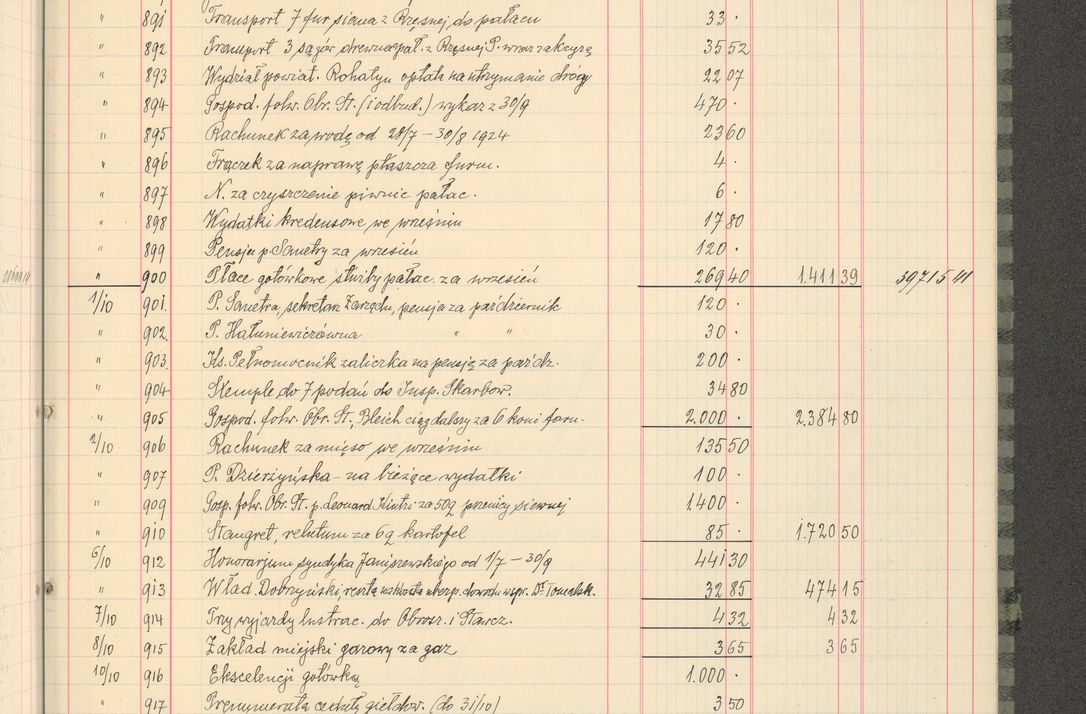 " 891 Transport 7 fur siana z Rzęsnej do pałacu 33 ·
" 892 Transport 3 sążni drzewa opał. z Rzęsnej P. wraz z akcyzą 35 52
" 893 Wydział powiat. Rohatyn opłata na utrzymanie drogi 22 07
" 894 Gospod. folw. Obr. St. (i odbud.) wykaz z 30/9 470 ·
" 895 Rachunek za wodę od 28/7 – 30/8 1924 23 60
" 896 Frączek za naprawę płaszcza furm. 4 ·
" 897 N. za czyszczenie piwnic pałac. 6 ·
" 898 Wydatki kredensowe we wrześniu 17 80
" 899 Pensja p. Sanetry za wrzesień 120 ·
" 900 Płace gotówkowe służby pałac. za wrzesień 269 40 1.411 39 39715 41
1/10 901. P. Sanetra, sekretarz Zarządu, pensja za październik 120 ·
" 902. P. Hałuniewiczówna " " 30 ·
" 903. Ks. Pełnomocnik zaliczka na pensję za paźdz. 200 ·
" 904 Stemple do 7 podań do Insp. Skarbow. 34 80
" 905 Gospod. folw. Obr. St. Bleich ciąg dalszy za 6 koni forn. 2.000 · 2.384 80
2/10 906 Rachunek za mięso we wrześniu 135 50
" 907 P. Dzierżyńska – na bieżące wydatki 100 ·
" 909 Gosp. folw. Obr. St. p. Leonard Kintzi za 50q pszenicy siewnej 1.400 ·
" 910 Stangret, relutum za 6q kartofel 85 · 1.720 50
6/10 912 Honorarjum syndyka Janiszewskiego od 1/7 – 30/9 441 30
" 913 Wład. Dobrzyński, reszta dowodu w spr. Dr 32 85 474 15
7/10 914 Trzy wyjazdy lustrac. do Obrosz. i Stawcz. 4 32 4 32
8/10 915 Zakład miejski gazowy za gaz 3 65 3 65
10/10 916 Ekscelencji gotówką 1.000 ·
" 917 Prenumerata ceduły giełdow. (do 31/10) 3 50